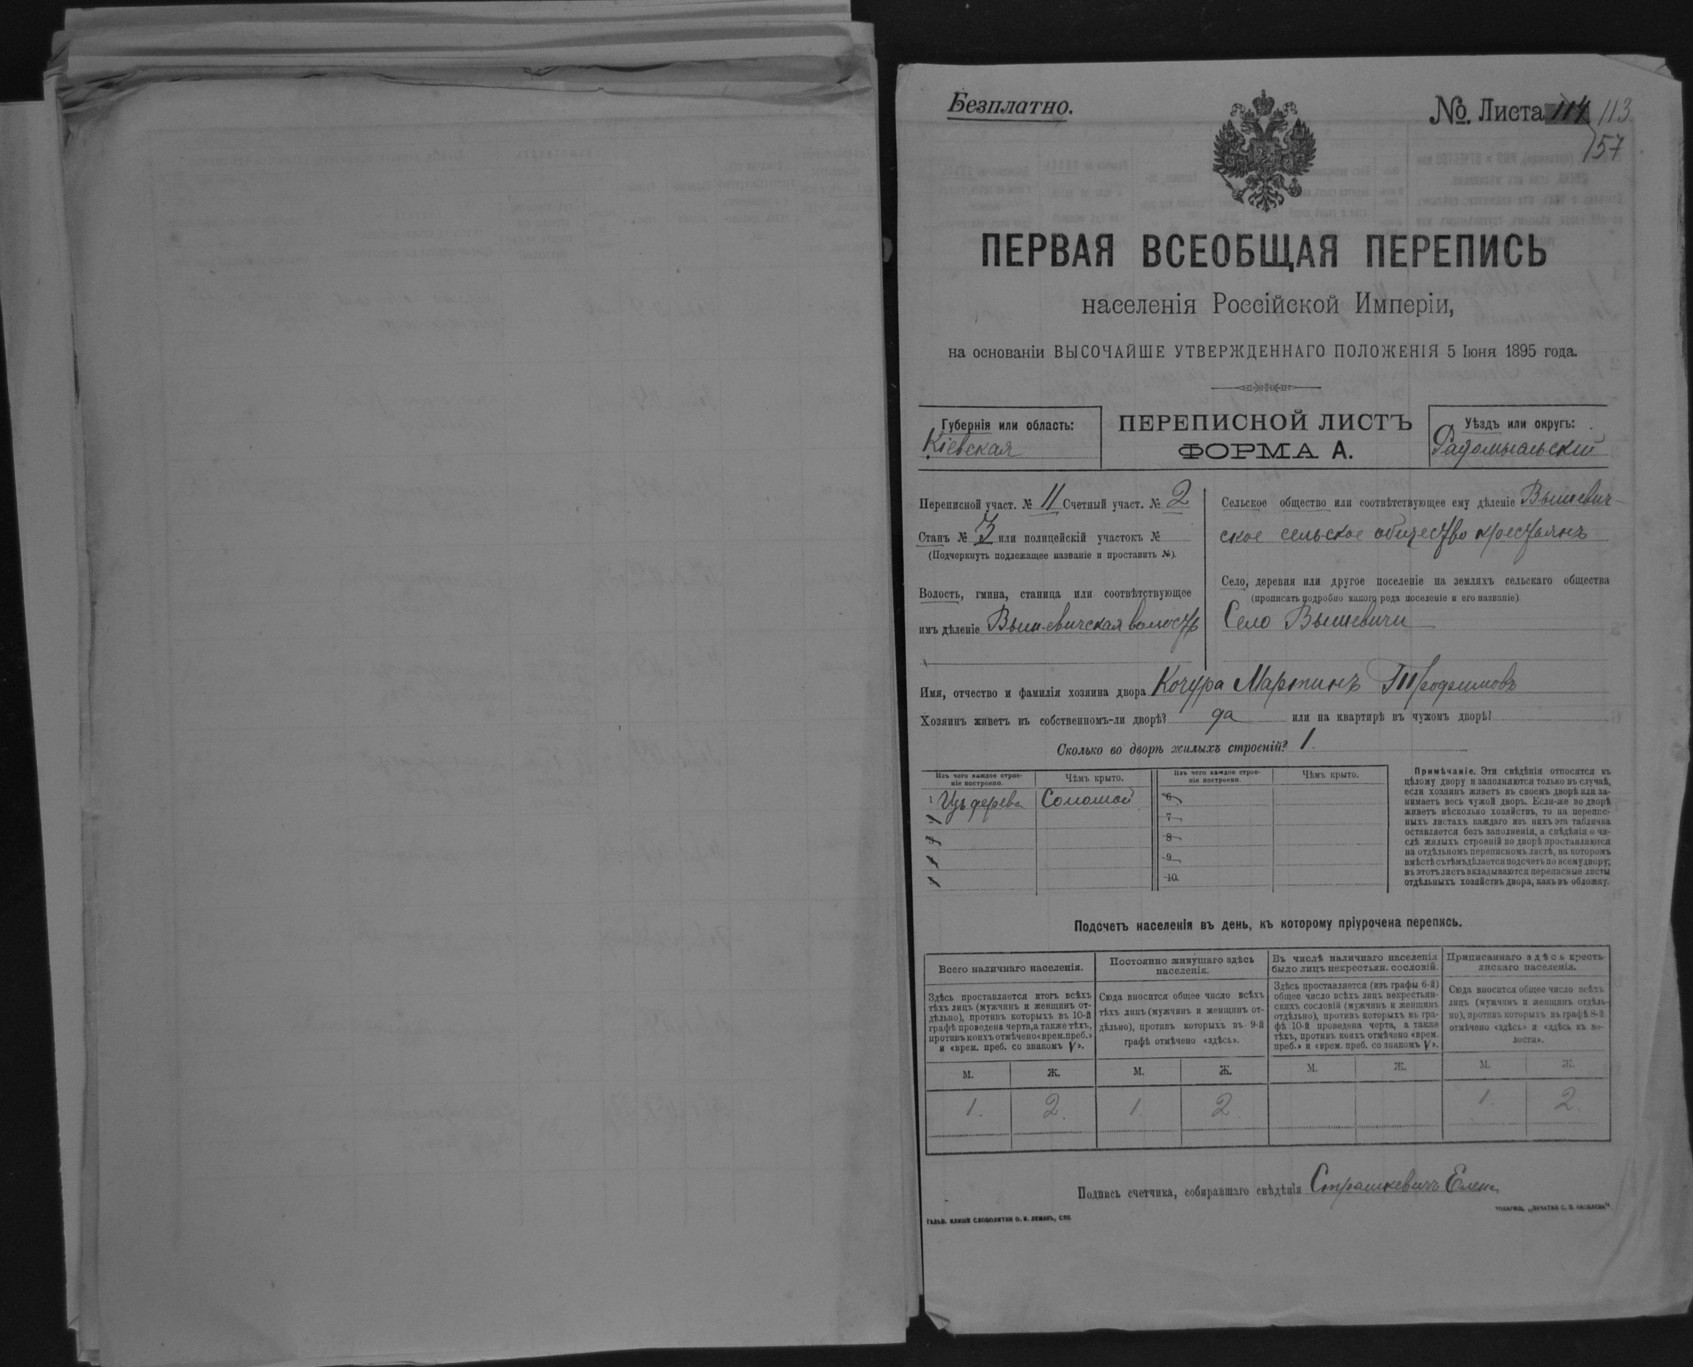 Безплатно.
№ Листа 114 113
157
ПЕРВАЯ ВСЕОБЩАЯ ПЕРЕПИСЬ
населенія Россійской Имперіи,
на основаніи ВЫСОЧАЙШЕ УТВЕРЖДЕННАГО ПОЛОЖЕНІЯ 5 Іюня 1895 года.
Губернія или область:
Кіевская
ПЕРЕПИСНОЙ ЛИСТЪ
ФОРМА А.
Уѣздъ или округъ:
Радомысльскій
Переписной участ. № 11 Счетный участ. № 2
Станъ № 3 или полицейскій участокъ №
(Подчеркнуть подлежащее названіе и проставить №).
Волость, гмина, станица или соотвѣтствующее
имъ дѣленіе Вышевичская волость
Сельское общество или соотвѣтствующее ему дѣленіе Вышевич-
ское сельское общество крестьянъ
Село, деревня или другое поселеніе на земляхъ сельскаго общества
(прописать подробно какого рода поселеніе и его названіе)
Село Вышевичи
Имя, отчество и фамилія хозяина двора Кочура Мартинъ Трофимовъ
Хозяинъ живетъ въ собственномъ-ли дворѣ? да или на квартирѣ въ чужомъ дворѣ?
Сколько во дворѣ жилыхъ строеній? 1.
Изъ чего каждое строе-
ніе построено.
Чѣмъ крыто.
Изъ чего каждое строе-
ніе построено.
Чѣмъ крыто.
1 Изъ дерева Соломой
6
7
8
9
10.
Примѣчаніе. Эти свѣдѣнія относятся къ
цѣлому двору и заполняются только въ случаѣ,
если хозяинъ живетъ въ своемъ дворѣ или за-
нимаетъ весь чужой дворъ. Если-же во дворѣ
живетъ нѣсколько хозяйствъ, то на перепис-
ныхъ листахъ каждаго изъ нихъ эта табличка
оставляется безъ заполненія, а свѣдѣнія о чи-
слѣ жилыхъ строеній во дворѣ проставляются
на отдѣльномъ переписномъ листѣ, на которомъ
вмѣстѣ съ тѣмъ дѣлается подсчетъ по всему двору;
въ этотъ листъ вкладываются переписные листы
отдѣльныхъ хозяйствъ двора, какъ въ обложку.
Подсчетъ населенія въ день, къ которому пріурочена перепись.
Всего наличнаго населенія.
Постоянно живущаго здѣсь
населенія.
Въ числѣ наличнаго населенія
было лицъ некрестьян. сословій.
Приписаннаго здѣсь кресть-
янскаго населенія.
Здѣсь проставляется итогъ всѣхъ
тѣхъ лицъ (мужчинъ и женщинъ от-
дѣльно), противъ которыхъ въ 10-й
графѣ проведена черта, а также тѣхъ,
противъ коихъ отмѣчено «врем. преб.»
и «врем. преб. со знакомъ V».
Сюда вносится общее число всѣхъ
тѣхъ лицъ (мужчинъ и женщинъ от-
дѣльно), противъ которыхъ въ 9-й
графѣ отмѣчено «здѣсь».
Здѣсь проставляется (изъ графы 6-й)
общее число всѣхъ лицъ некрестьян-
скихъ сословій (мужчинъ и женщинъ
отдѣльно), противъ которыхъ въ гра-
фѣ 10-й проведена черта, а также
тѣхъ, противъ коихъ отмѣчено «врем.
преб.» и «врем. преб. со знакомъ V».
Сюда вносится общее число всѣхъ
лицъ (мужчинъ и женщинъ отдѣль-
но), противъ которыхъ въ графѣ 8-й
отмѣчено «здѣсь» и «здѣсь въ во-
лости».
М. Ж. М. Ж. М. Ж. М. Ж.
1. 2. 1 2 1. 2.
Подпись счетчика, собиравшаго свѣдѣнія Страшкевичъ
ГАЛЬВ. КЛИШЕ СЛОВОЛИТНИ О. И. ЛЕМАНЪ, СПБ.
ТОВАРИЩ. „ПЕЧАТНЯ С. П. ЯКОВЛЕВА“